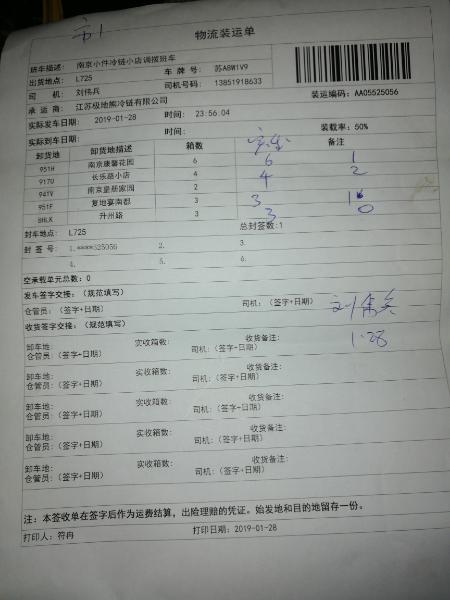 物流装运单
班车描述: 南京小件冷链小店调拨班车
出货地点: L725 车 牌 号: 苏A8W1V9
司 机: 刘伟兵 司机号码: 13851918633
承 运 商: 江苏极地熊冷链有限公司 装运编码: AA05525056
实际发车日期: 2019-01-28 时间: 23:56:04
实际到车日期: 时间: 装载率: 50%
卸货地 卸货地描述 箱数 备注
951H 南京康馨花园 6 6 1
9170 长乐路小店 4 4 2
94TV 南京皇册家园 2
951F 复地宴南都 3 3
8HLK 升州路 3 3 0
封车地点: L725 总封签数:1
封 签 号: 1.****325056 2. 3.
4. 5. 6.
空承载单元总数: 0
发车签字交接: (规范填写)
仓管员: (签字+日期) 司机: (签字+日期) 刘伟兵
收货签字交接: (规范填写) 1.28
卸车地: 实收箱数: 收货备注:
仓管员: (签字+日期) 司机: (签字+日期)
卸车地: 实收箱数: 收货备注:
仓管员: (签字+日期) 司机: (签字+日期)
卸车地: 实收箱数: 收货备注:
仓管员: (签字+日期) 司机: (签字+日期)
卸车地: 实收箱数: 收货备注:
仓管员: (签字+日期) 司机: (签字+日期)
卸车地: 实收箱数: 收货备注:
仓管员: (签字+日期) 司机: (签字+日期)
注: 本签收单在签字后作为运费结算, 出险理赔的凭证。始发地和目的地留存一份。
打印人: 符冉 打印日期: 2019-01-28